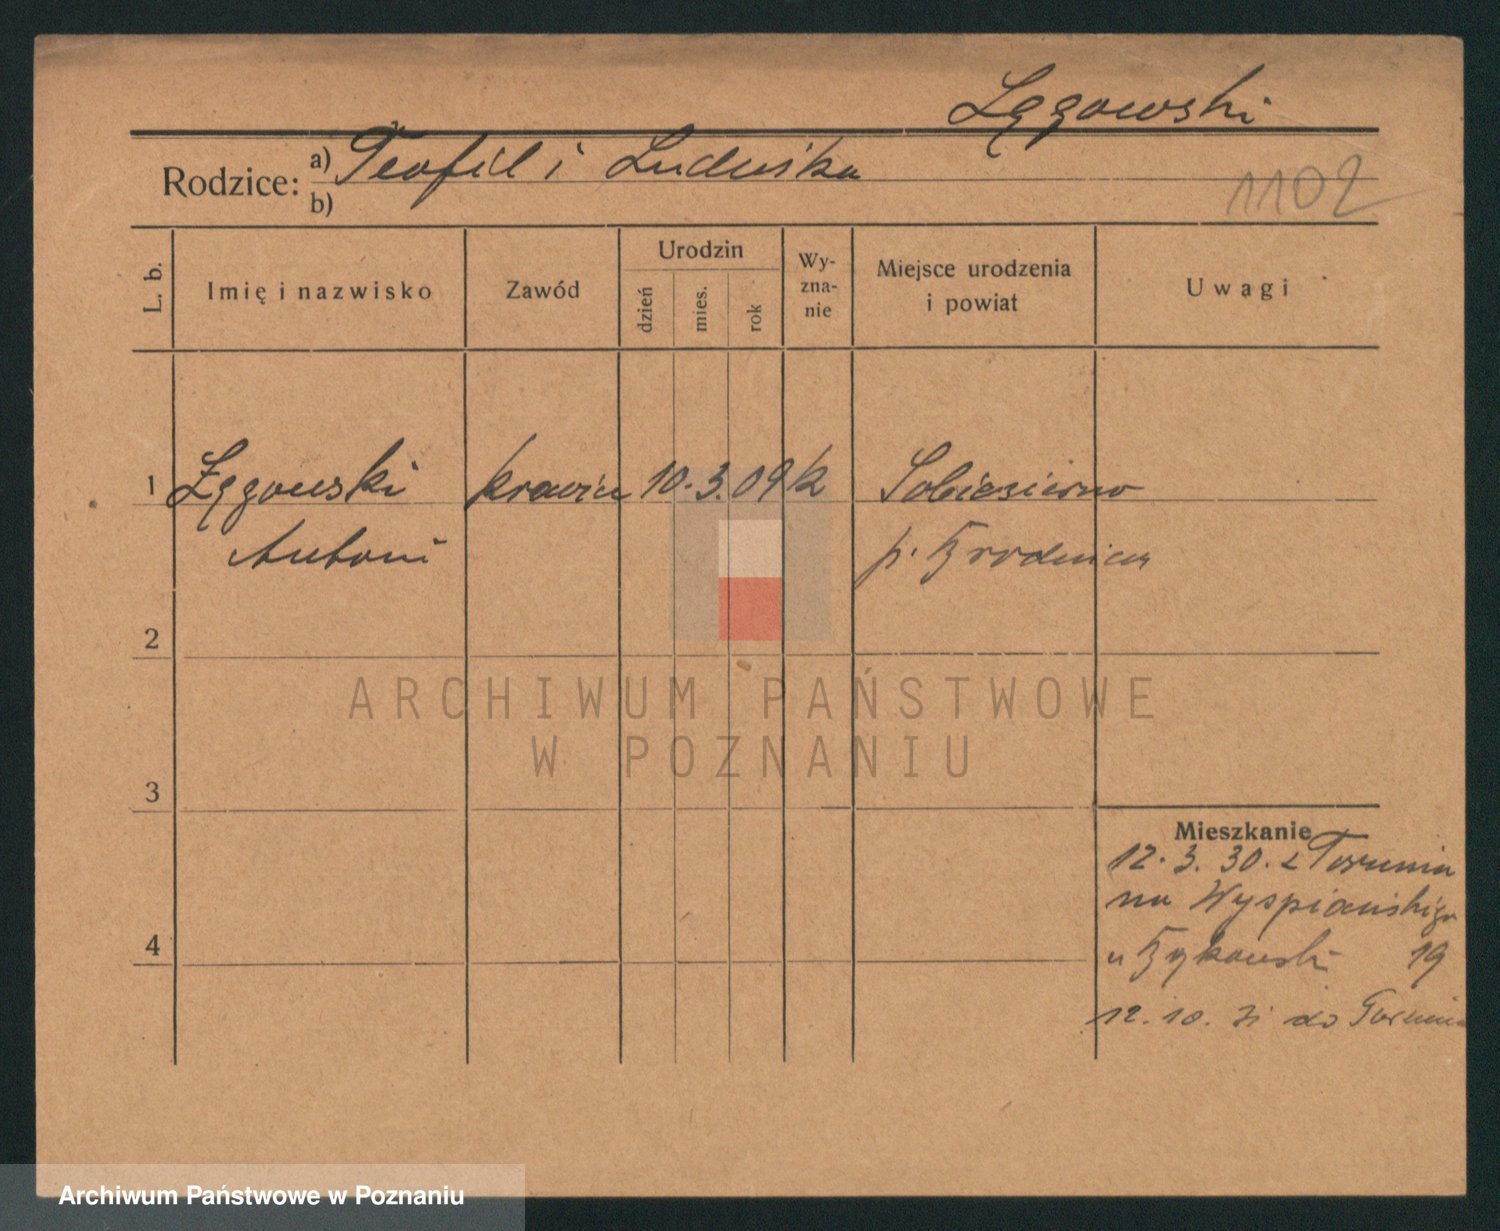 Łęgowski
Rodzice: a) Teofil i Ludwika
b)
1102
L. b.
Imię i nazwisko
Zawód
Urodzin
dzień
mies.
rok
Wy-
zna-
nie
Miejsce urodzenia
i powiat
Uwagi
1 Łęgowski krawiec 10. 3. 09 k Sobiesierno
Antoni p. Brodnica
2
3
4
ARCHIWUM PAŃSTWOWE
W POZNANIU
Mieszkanie
12. 3. 30. z Torunia
na Wyspiańskiego
u Bykowski 19
12. 10. 31 do Torunia
Archiwum Państwowe w Poznaniu